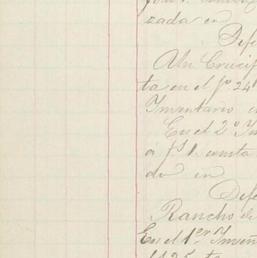 zada en
Defe
Aln Crucif
ta en el fo 24
Inventario
En el 2o In
á fs 1. consta
do en
Defe
Rancho de
En el 1er Inven